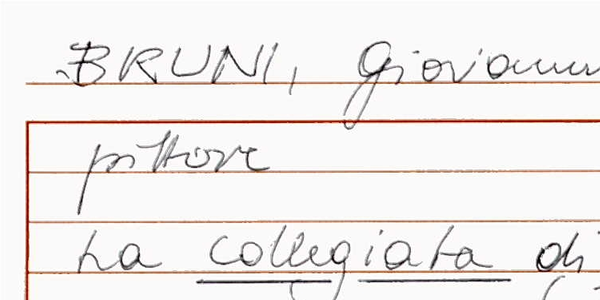 BRUNI, Giovanni
pittore
La collegiata di